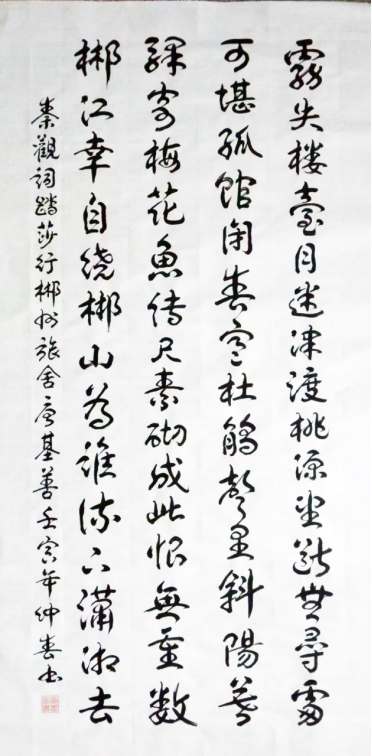 霧失楼臺月迷津渡桃源望斷無尋處
可堪孤館閉春寒杜鵑聲里斜陽暮
驛寄梅花魚傳尺素砌成此恨無重數
郴江幸自绕郴山為誰流下瀟湘去
秦觀詞踏莎行郴州旅舍唐基善壬寅年仲春书